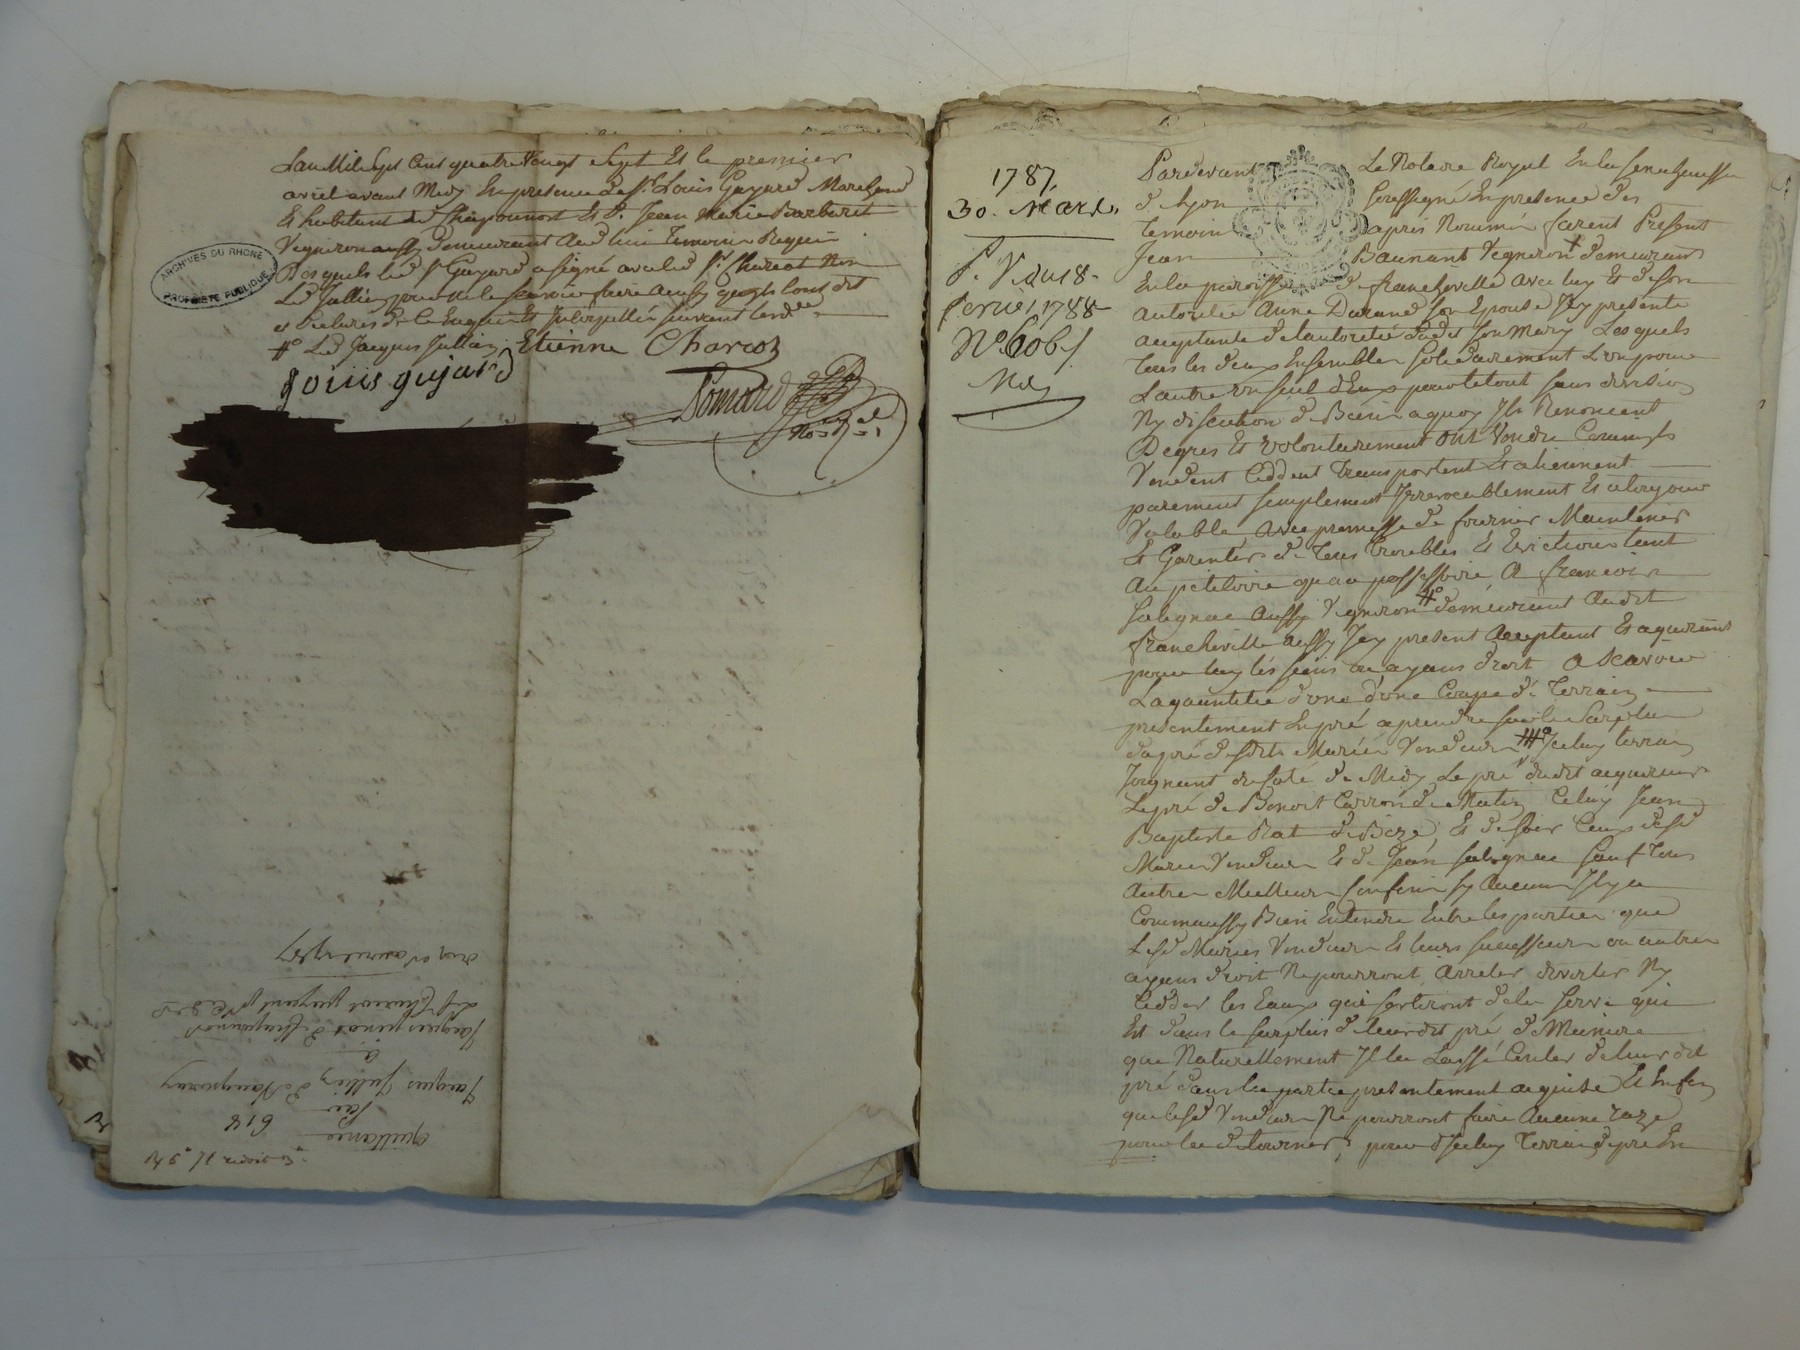 Lan Mil Sept Cent quatre Vingt Sept Et le premier
avril avant Midy En presence de Sr. Louis Guyard Marchand
Et habitant de Chaponost Et de Jean Marie Barberet
Vigneron aussy demeurant Audit lieu Temoins Requis
Desquels led Sr Guyard a signé avec led Sr. Charcot Non
Led Jullien pour ne le scavoir faire ainsy quils lont dit
et declarés de ce Enquis Et suivant lordce
Led Jacques Jullien Etienne Charcot
Louis gujard
Ponard
Nore Ral
ARCHIVES DU RHONE
PROPRIÉTÉ PUBLIQUE
Quittance
614
par
Jacques Jullien
a
Jacques
Sr Charcot
du 1er avril 1787
1787
30. Mars.
P. V du 18
fevrier 1788
No. 606
Pardevant Le Notaire Royal En la Senechaussée
de Lyon Soussigné En presence des
temoins après Nommés furent Presant
Jean Baunant Vigneron demeurant
En la paroisse de francheville Avec luy Et de son
autorité Anne Durand son Epouse Icy presente
acceptante de lautorité dudit son Mary Lesquels
tous les deux Ensemble solidairement Lun pour
Lautre un seul dEux pour le tout sans division
Ny discution de Biens aquoy Ils Renoncent
De gres Et volontairement Ont Vendu Comme ils
Vendent Ceddent transportent Et alienent
purement simplement Irrevocablement Et a toujour
Valable Avec promesse de fournir Maintenir
Et Garentir de tous troubles Et Evictions tant
Au petitoire quau possessoire, A francois
Salignac Aussy Vigneron demeurant Audit
francheville Aussy Icy present Acceptant Et aquerant
pour luy les siens ou ayans droit A Scavoir
La quantitée d'une d'une Coupe de Terrain
presentement En pré a prendre sur le surplus
du pré desdits Mariés Vendeurs Iceluy terrain
Joignant du Coté de Midy Le pré dudit acquereur
Le pré de Benoit Carron de Matin Celuy Jean
Baptiste Rat de Bize, Et de soir Ceux desd
Mariés Vendeurs Et de Jean Salignac Sauf tous
Autres Meilleurs Confins sy Aucuns Il y a
Comme aussy Bien Entendu Entre les parties que
Lesd Mariés Vendeurs Et leurs successeurs ou autres
ayans droit Ne pourront Arreter divertir Ny
Cedder les Eaux qui sortiront de la Serve qui
Est dans le surplus de leurdit pré de Meniere
que Naturellement Il la Laissé Couler de leurdit
pré dans la partie presentement aquise Et Enfin
que lesd Vendeurs Ne pourront faire Aucune raze
pour les detourner, pour d'Iceluy Terrain de pré En